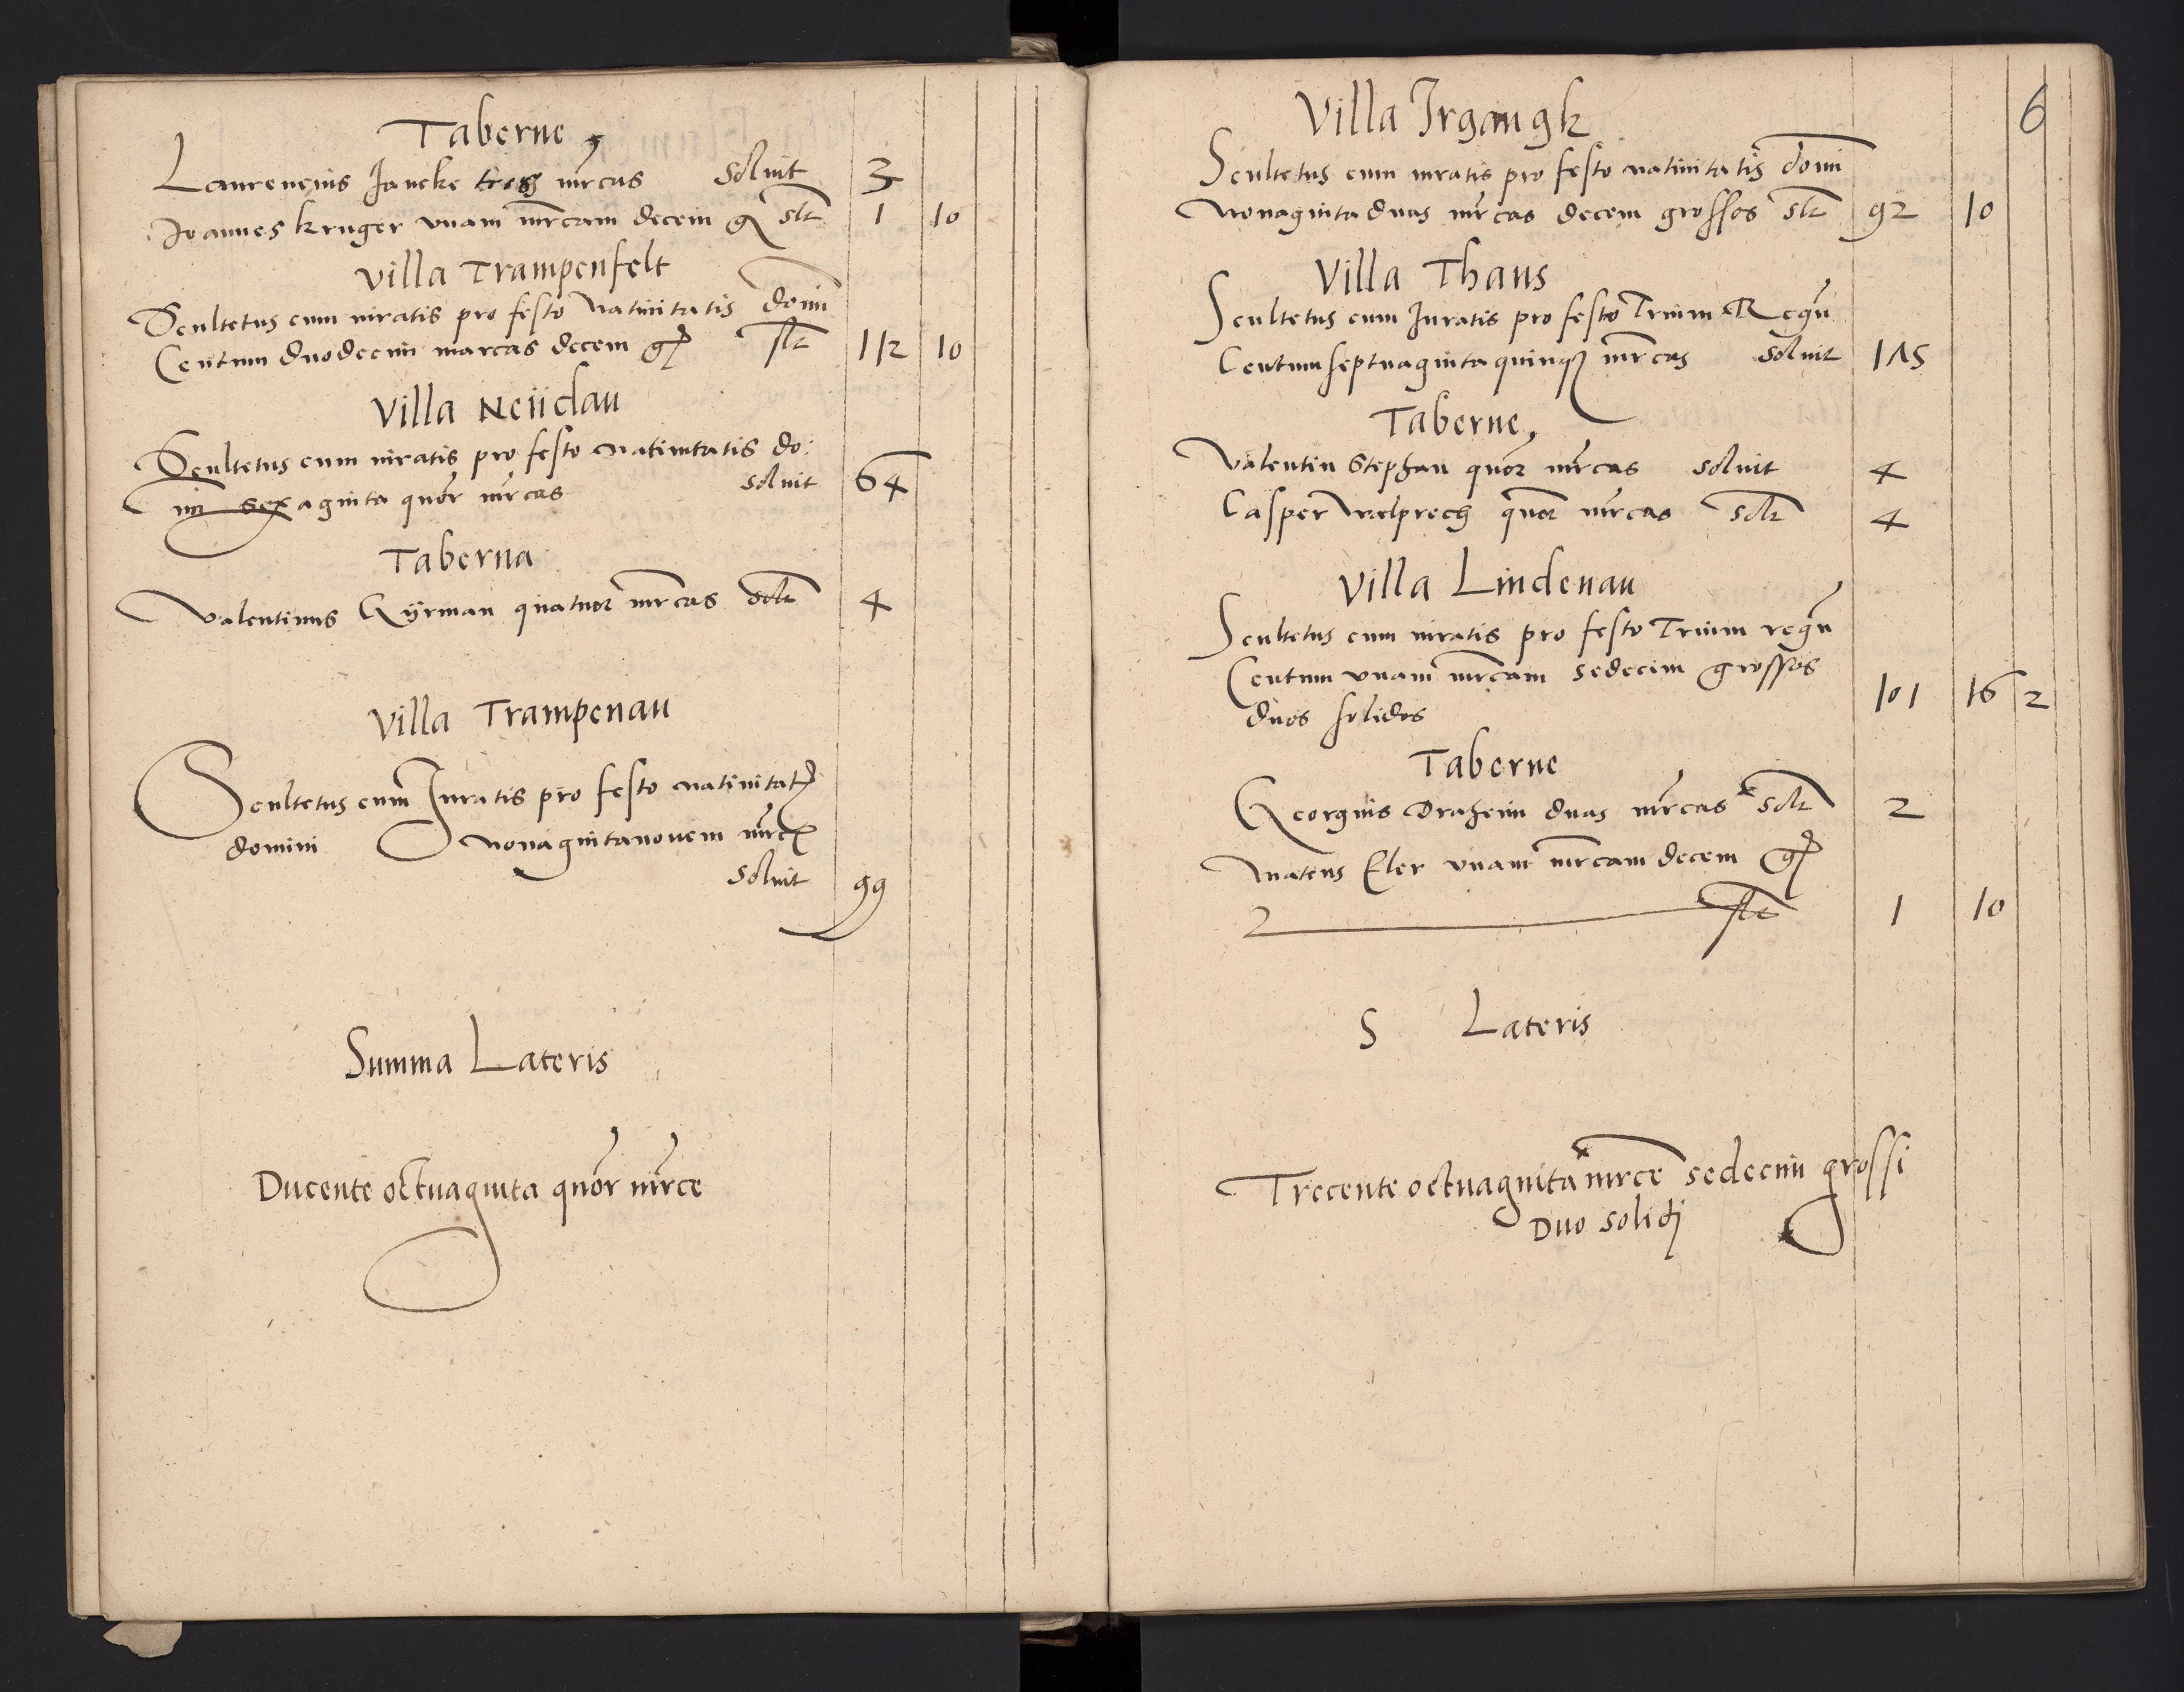 Taberne
Laurencius Jancke tres mrcas soluit 3
Joannes kruger vnam mrcam decem g slt 1 10
Villa Trampenfelt
Scultetus cum iuratis pro festo Natiuitatis domi
Centum duodecim marcas decem g slt 112 10
Villa Neijclau
Scultetus cum iuratis pro festo natiuitatis do:
ini sexaginta quor mrcas soluit 64
Taberna
Valentinus quatuor mrcas solt 4
Villa Trampenau
Scultetus cum Juratis pro festo natiuitat
domini nonagintanouem mrc
soluit 99
Summa Lateris
Ducente octuaginta quor mrce
6
Villa Jrgangk
Scultetus cum iuratis pro festo natiuitatis domi
nonaginta duas mrcas decem grossos slt 92 10
Villa Thans
Scultetus cum Juratis pro festo Trium Regu
Centum septuaginta quinq mrcas soluit 175
Taberne
Valentin Stephan quor mrcas soluit 4
Casper quor mrcas solt 4
Villa Lindenau
Scultetus cum iuratis pro festo Trium regu
Centum vnam mrcam sedecim grossos
duos solidos 101 16 2
Taberne
Georgius Draheim duas mrcas solt 2
Mateus Eler vnam mrcam decem g
slt 1 10
S Lateris
Trecente octuaginta mrce sedecim grossi
Duo solidj